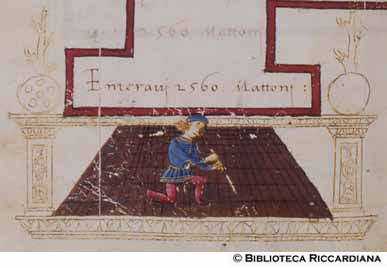 2560 Mattoni
Enterauj 2560 Mattonj :
© BIBLIOTECA RICCARDIANA